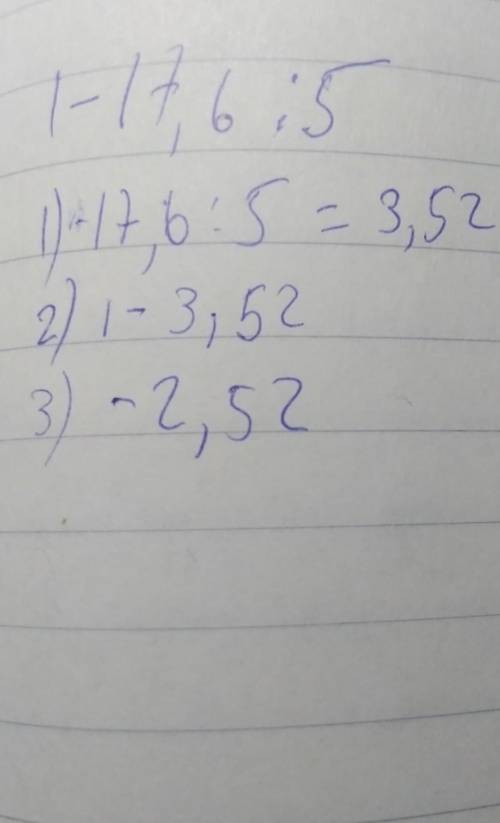 1-17,6:5
1) -17,6:5=3,52
2) 1-3,52
3) -2,52